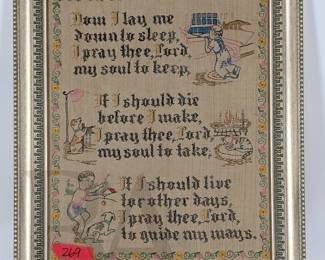 Now I lay me
down to sleep,
I pray thee, Lord,
my soul to keep,
If I should die
before I wake,
I pray thee, Lord
my soul to take,
If I should live
for other days,
I pray thee, Lord,
to guide my ways.
269